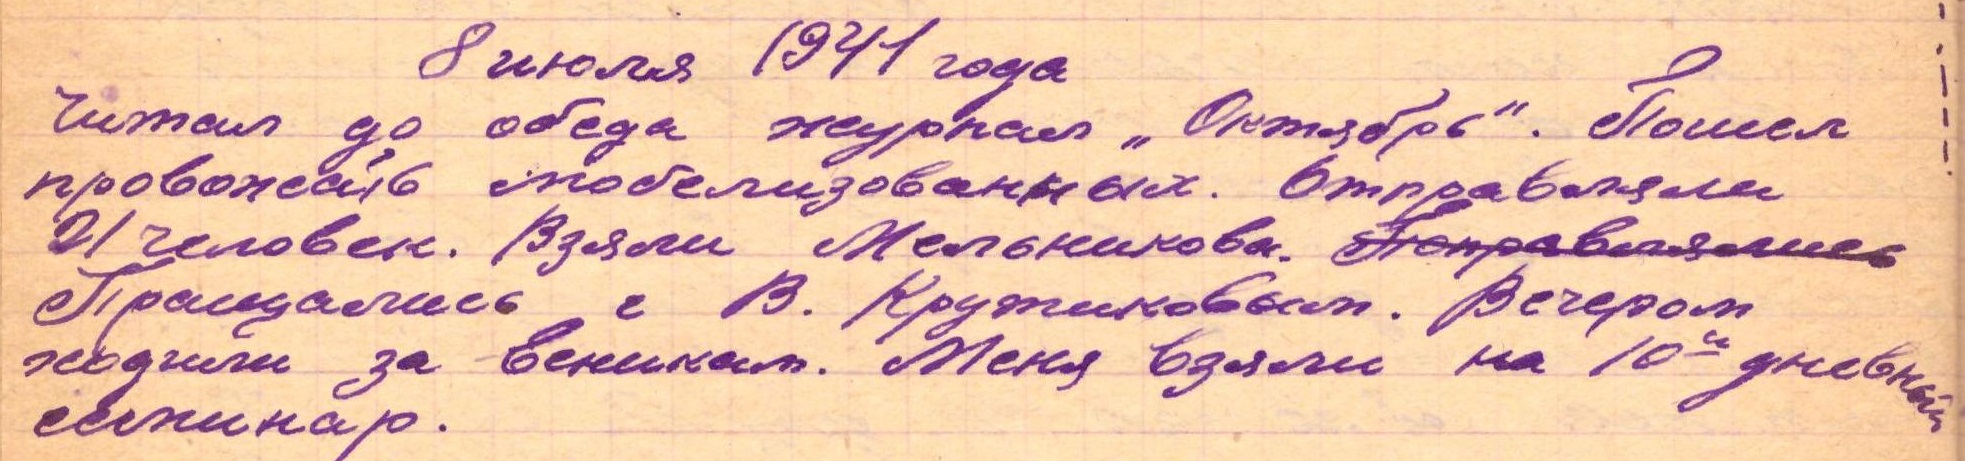 8 июля 1941 года
Читал до обеда журнал „Октябрь“. Пошел
провожать мобелизованных. Отправляли
21 человек. Взяли Мельникова.
Пращались с В. Кружиковым. Вечером
ходили за веникам. Меня взяли на 10и дневный
семинар.